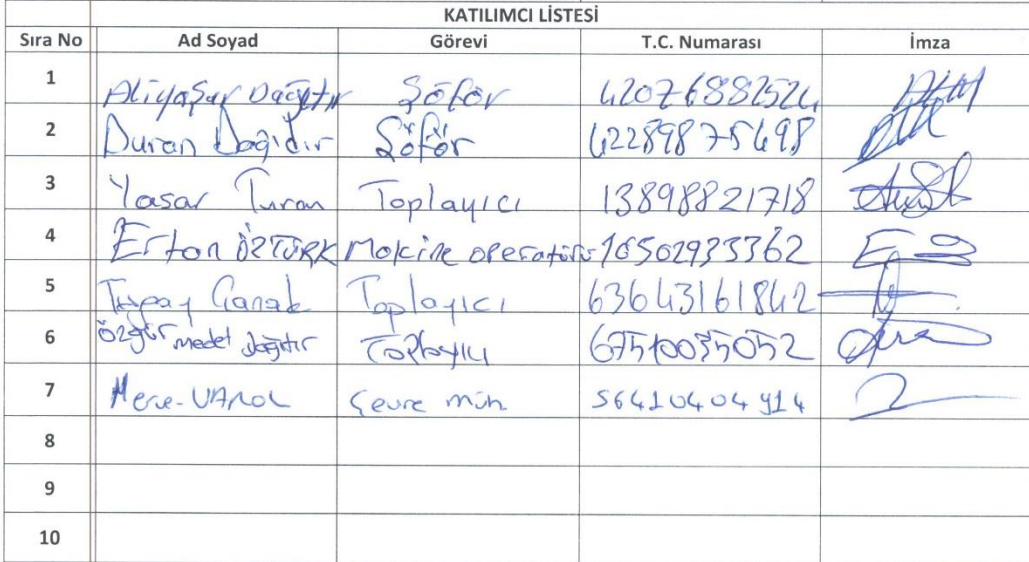 KATILIMCI LİSTESİ
Sıra No Ad Soyad Görevi T.C. Numarası İmza
1 Aliyaşar Dağıtır Şöför 42076882524
2 Duran Dağıdır Şöför 42289875498
3 Yaşar Turan Toplayıcı 13898821718
4 Ertan ÖZTÜRK Makine operatörü 16502933362
5 Toplayıcı 63643161842
6 özgür medet dağıtır Toplayıcı 67510035052
7 Merve VAROL Çevre müh. 56410404914
8
9
10